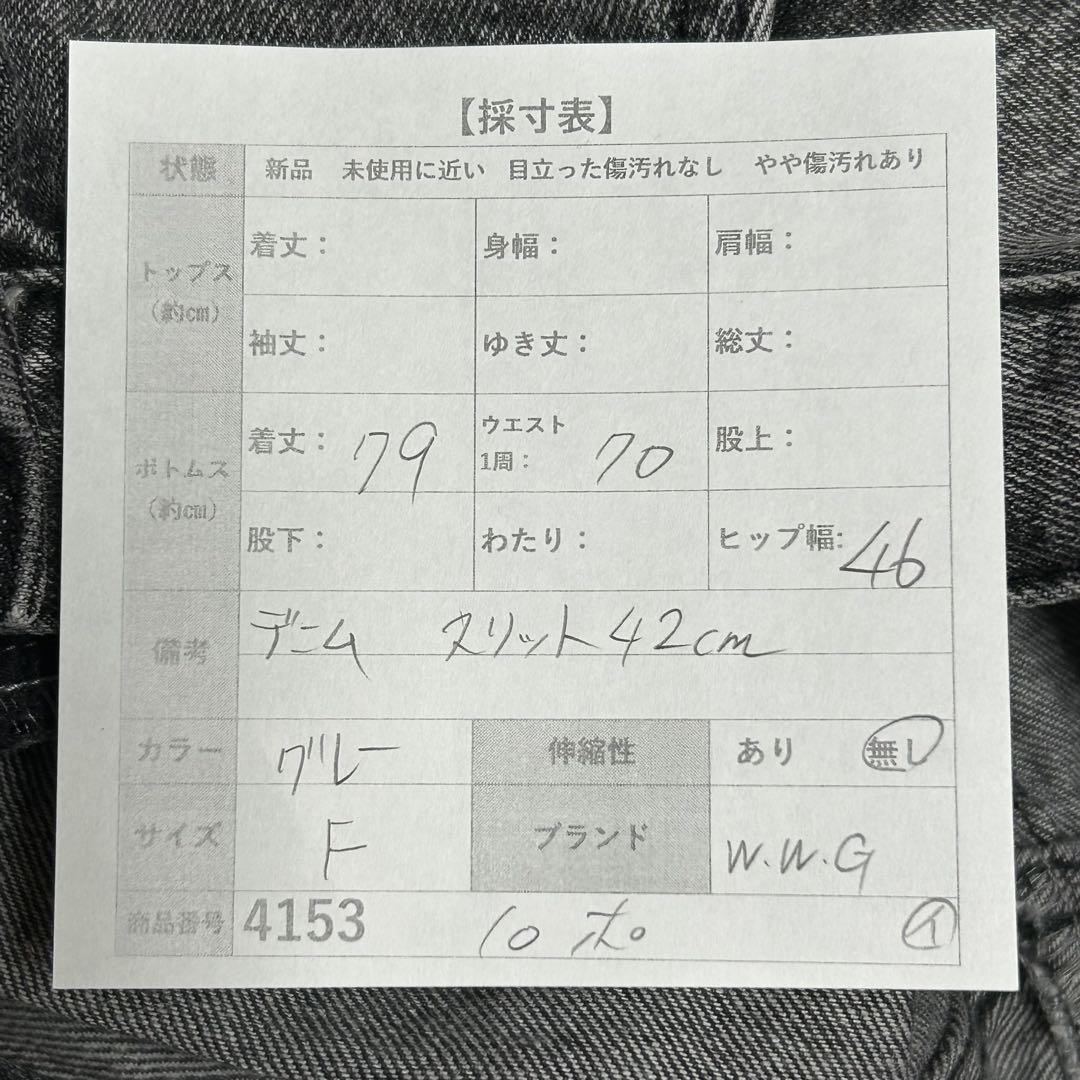 【採寸表】
状態 新品 未使用に近い 目立った傷汚れなし やや傷汚れあり
トップス
(約cm)
着丈: 身幅: 肩幅:
袖丈: ゆき丈: 総丈:
ボトムス
(約cm)
着丈: 79 ウエスト1周: 70 股上:
股下: わたり: ヒップ幅: 46
備考 デニム スリット42cm
カラー グレー 伸縮性 あり 無し
サイズ F ブランド W.W.G
商品番号 4153 10 ポ イ